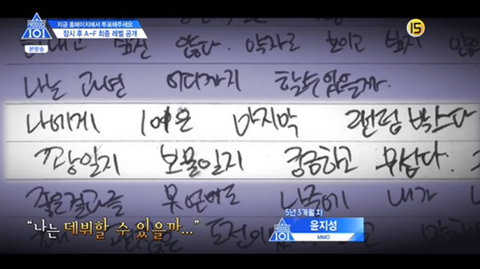 PRODUCE 101
지금 홈페이지에서 투표해주세요
잠시 후 A~F 최종 레벨 공개
본방송
15
싶진 않다. 약자로 보이고 싶지
나는 과연 어디까지 할수있을까.
나에게 101은 마지막 랜덤박스다
꽝일지 보물일지 궁금하고 무섭다.
좋은결과를 못얻어도 나중에 내가
"나는 데뷔할 수 있을까..."
PRODUCE 101
5년 3개월 차
윤지성
MMO